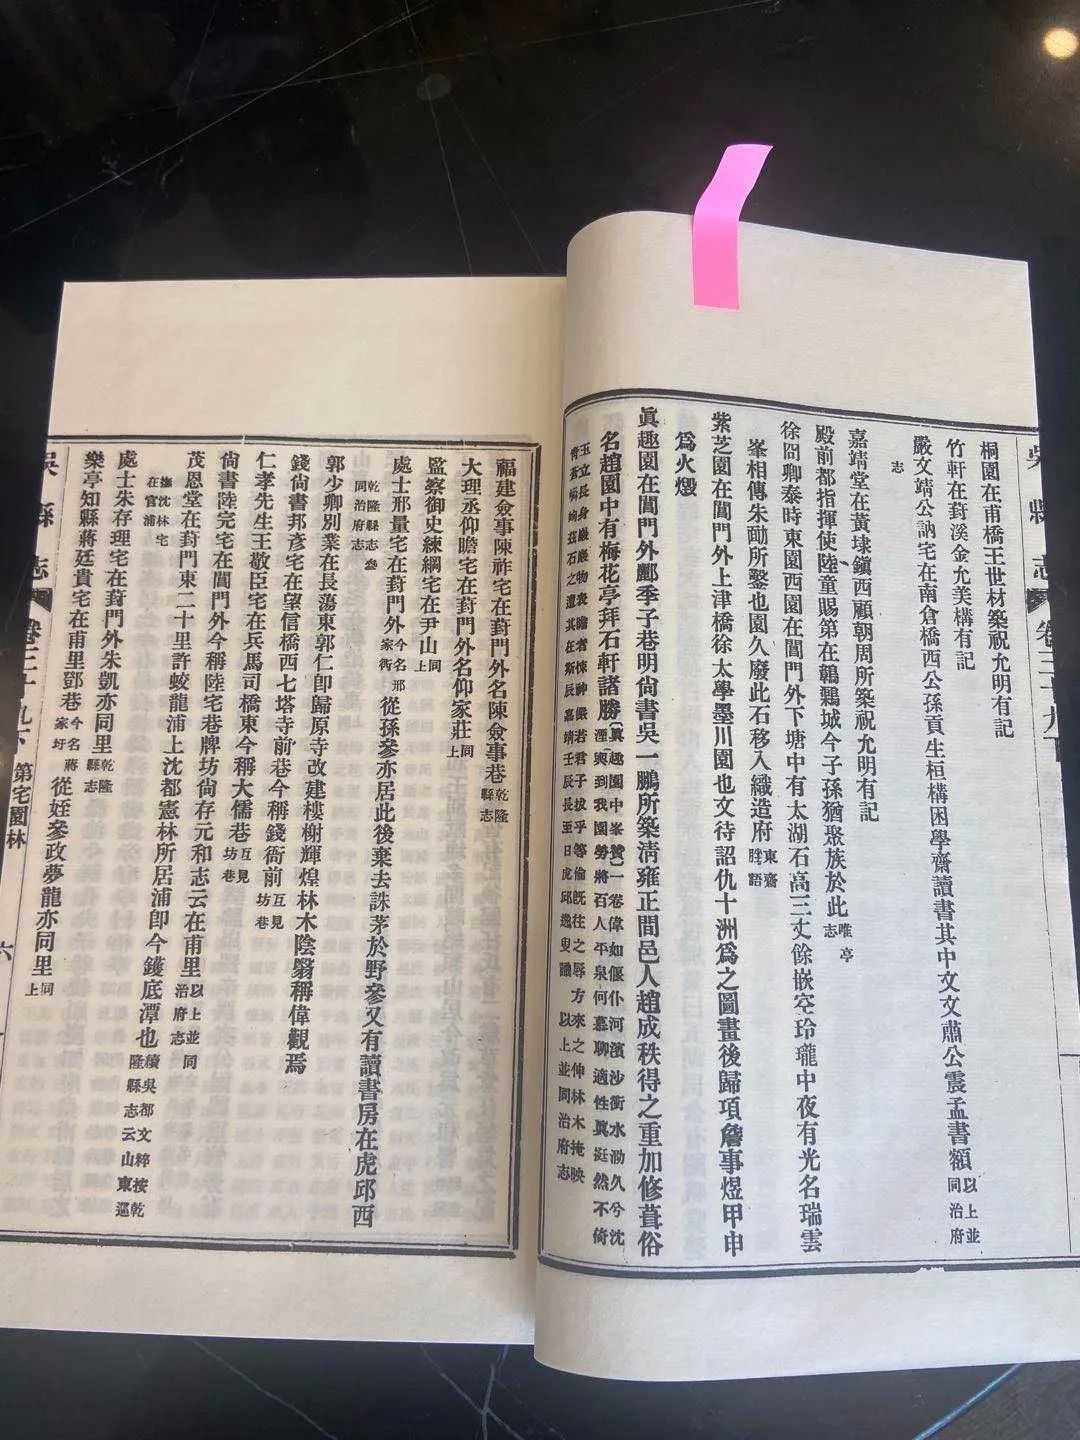 吳縣志 卷三十九下
桐園在甫橋王世材築祝允明有記
竹軒在葑溪金允美構有記
嚴文靖公訥宅在南倉橋西公孫貢生桓構困學齋讀書其中文文肅公震孟書額以上並同治府
志
嘉靖堂在黃埭鎭西顧朝周所築祝允明有記
殿前都指揮使陸童賜第在鸛鶵城今子孫猶聚族於此唯亭志
徐冏卿泰時東園西園在閶門外下塘中有太湖石高三丈餘嵌空玲瓏中夜有光名瑞雲
峯相傳朱勔所鑿也園久廢此石移入織造府東齋脞語
紫芝園在閶門外上津橋徐太學墨川園也文待詔仇十洲爲之圖畫後歸項詹事煜甲申
爲火燬
眞趣園在閶門外酈季子巷明尙書吳一鵬所築淸雍正間邑人趙成秩得之重加修葺俗
名趙園中有梅花亭拜石軒諸勝
福建僉事陳祚宅在葑門外名陳僉事巷乾隆縣志
大理丞仰瞻宅在葑門外名仰家莊同上
監察御史練綱宅在尹山同上
處士邢量宅在葑門外今名邢家衖從孫參亦居此後棄去誅茅於野參又有讀書房在虎邱西
乾隆縣志參同治府志
郭少卿別業在長蕩東郭仁卽歸原寺改建樓榭輝煌林木陰翳稱偉觀焉
錢尙書邦彥宅在望信橋西七塔寺前巷今稱錢衙前互見坊巷
仁孝先生王敬臣宅在兵馬司橋東今稱大儒巷互見坊巷
尙書陸完宅在閶門外今稱陸宅巷牌坊尙存元和志云在甫里以上並同治府志
茂恩堂在葑門東二十里許蛟龍浦上沈都憲林所居浦卽今鑊底潭也續吳都文粹按乾隆縣志云山東巡
撫沈林宅在官浦
處士朱存理宅在葑門外朱凱亦同里乾隆縣志
樂亭知縣蔣廷貴宅在甫里鄧巷今名蔣家圩從姪參政夢龍亦同里同上
吳縣志 卷三十九下 第宅園林 六